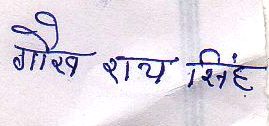 गौरव राय सिंह